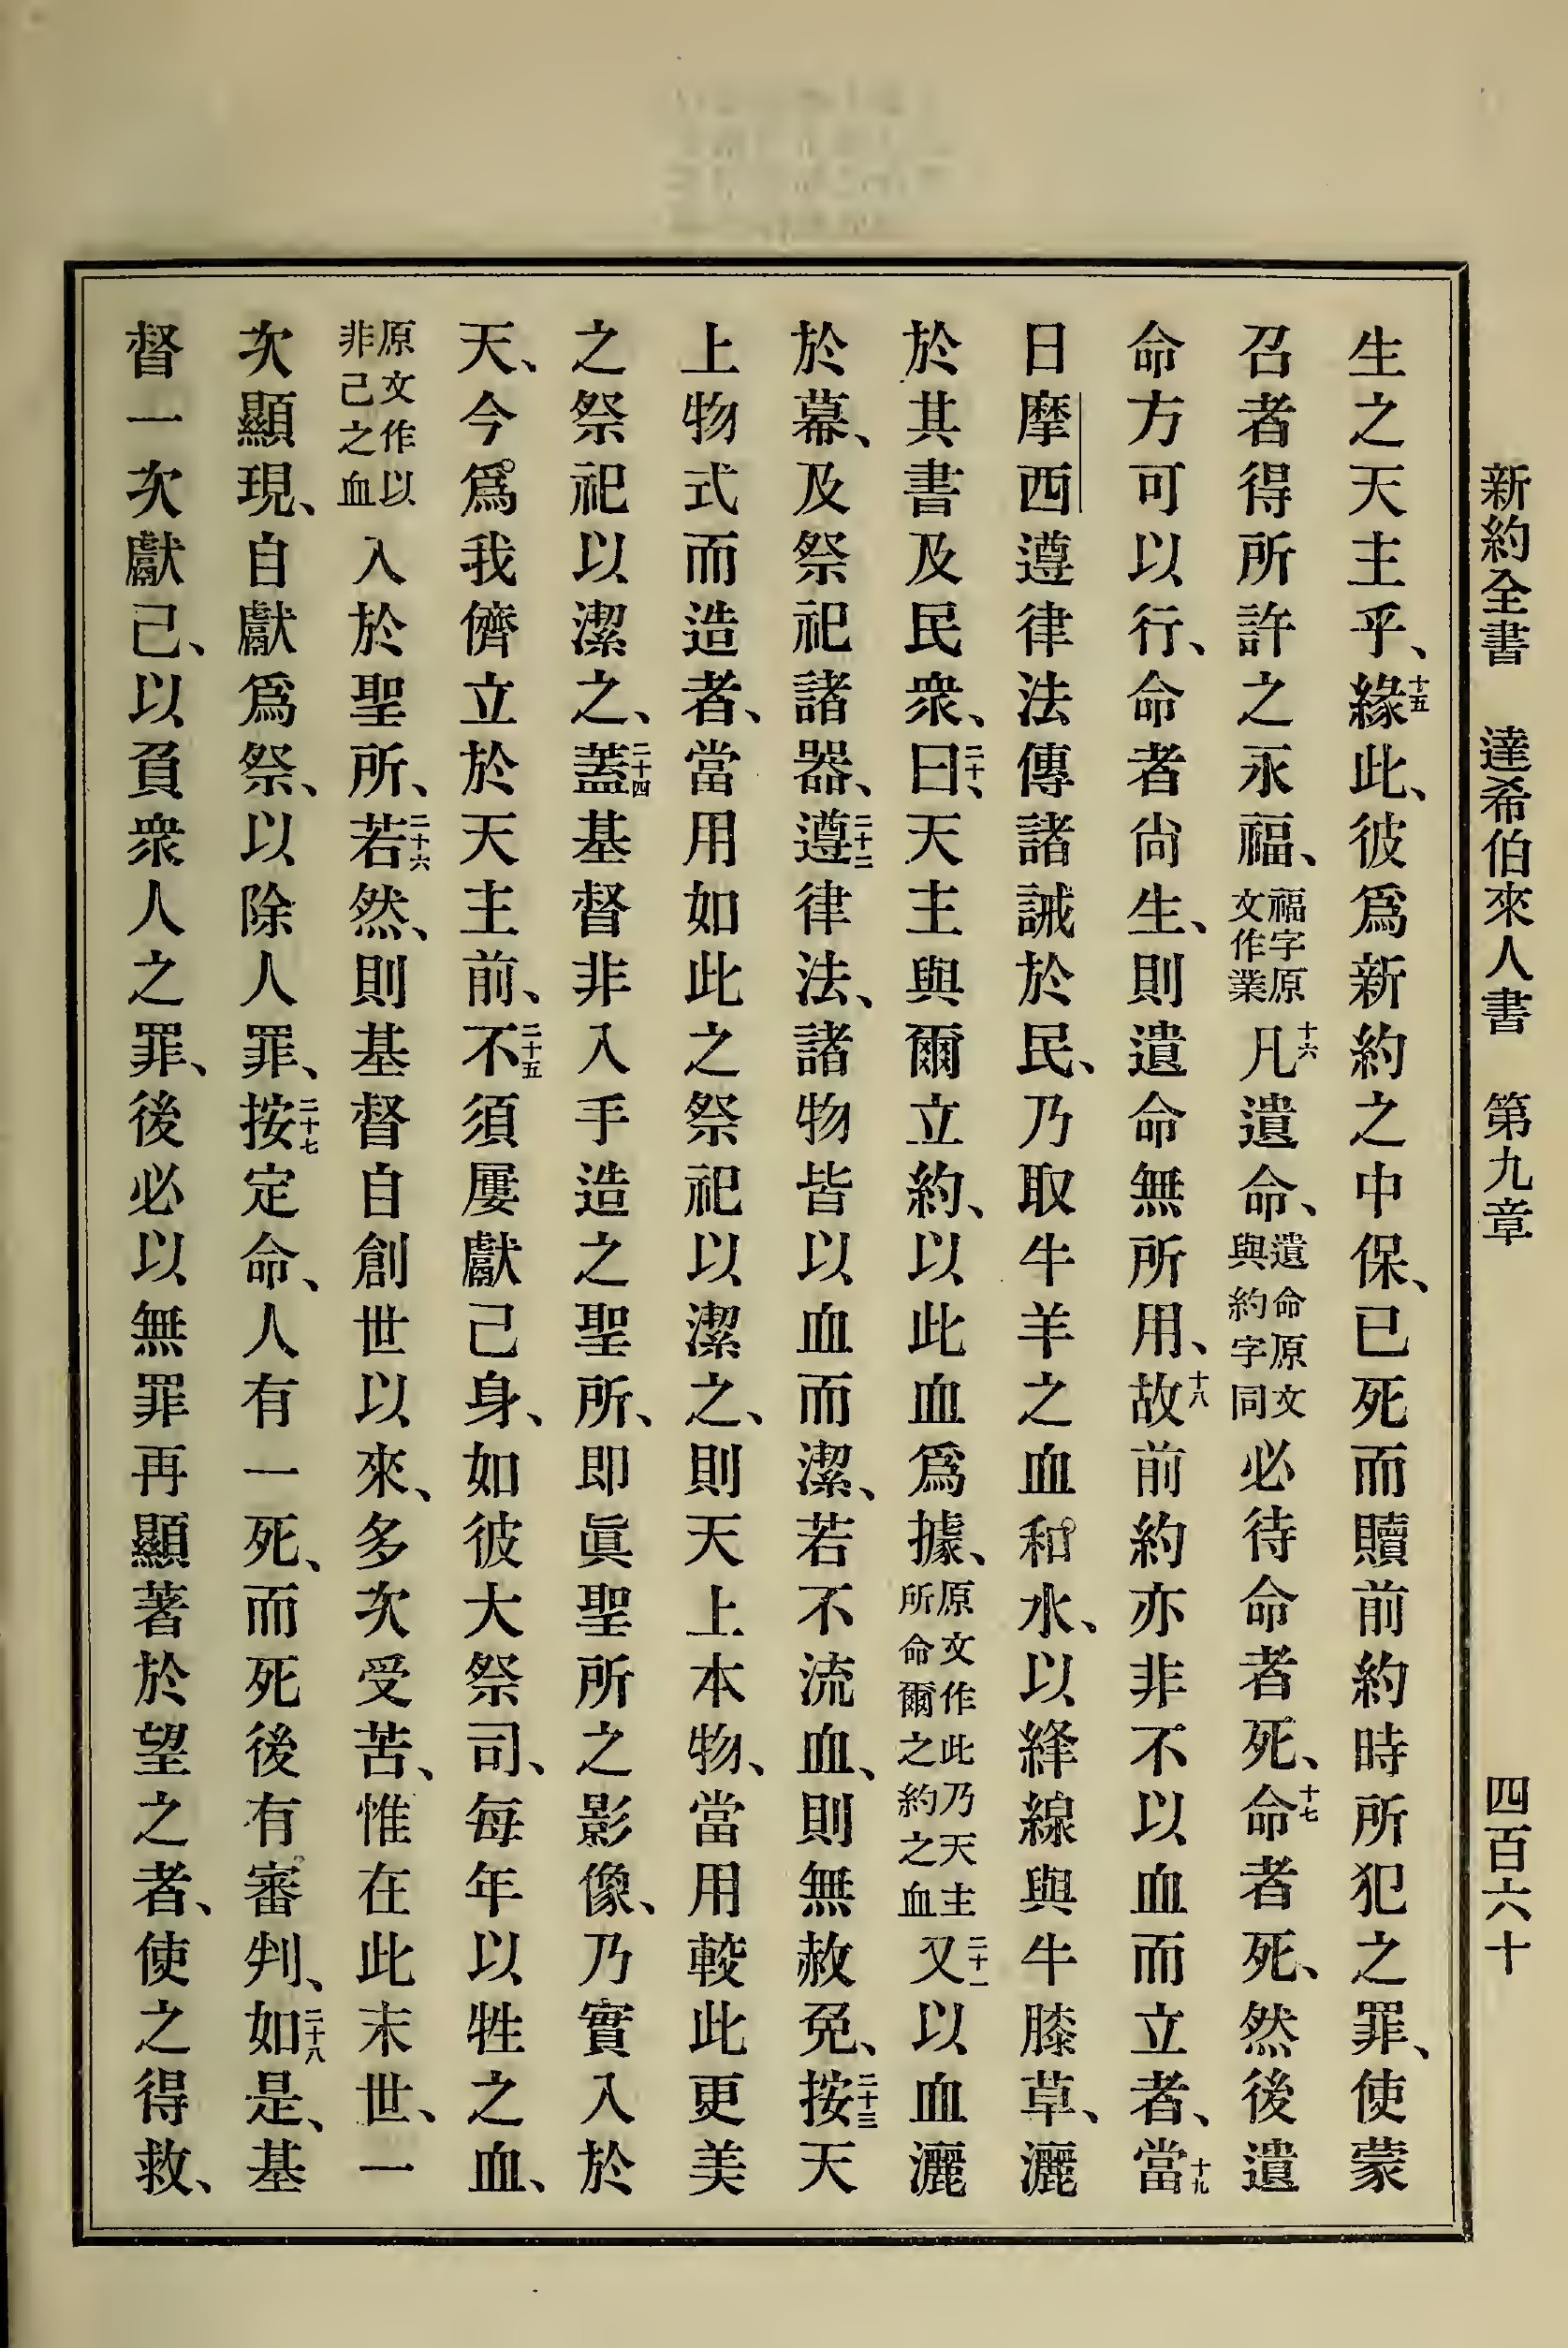 新約全書 達希伯來人書 第九章 四百六十
生之天主乎、十五緣此、彼爲新約之中保、已死而贖前約時所犯之罪、使蒙
召者得所許之永福、福字原文作業十六凡遺命、遺命原文與約字同必待命者死、十七命者死、然後遺
命方可以行、命者尚生、則遺命無所用、十八故前約亦非不以血而立者、十九當
日摩西遵律法傳諸誡於民、乃取牛羊之血和水、以絳線與牛膝草、灑
於其書及民衆、二十曰、天主與爾立約、以此血爲據、原文作此乃天主所命爾之約之血二十一又以血灑
於幕、及祭祀諸器、二十二遵律法、諸物皆以血而潔、若不流血、則無赦免、二十三按天
上物式而造者、當用如此之祭祀以潔之、則天上本物、當用較此更美
之祭祀以潔之、二十四蓋基督非入手造之聖所、即眞聖所之影像、乃實入於
天、今爲我儕立於天主前、二十五不須屢獻己身、如彼大祭司、每年以牲之血、
原文作以非己之血入於聖所、二十六若然、則基督自創世以來、多次受苦、惟在此末世、一
次顯現、自獻爲祭、以除人罪、二十七按定命、人有一死、而死後有審判、二十八如是、基
督一次獻己、以負衆人之罪、後必以無罪再顯著於望之者、使之得救、